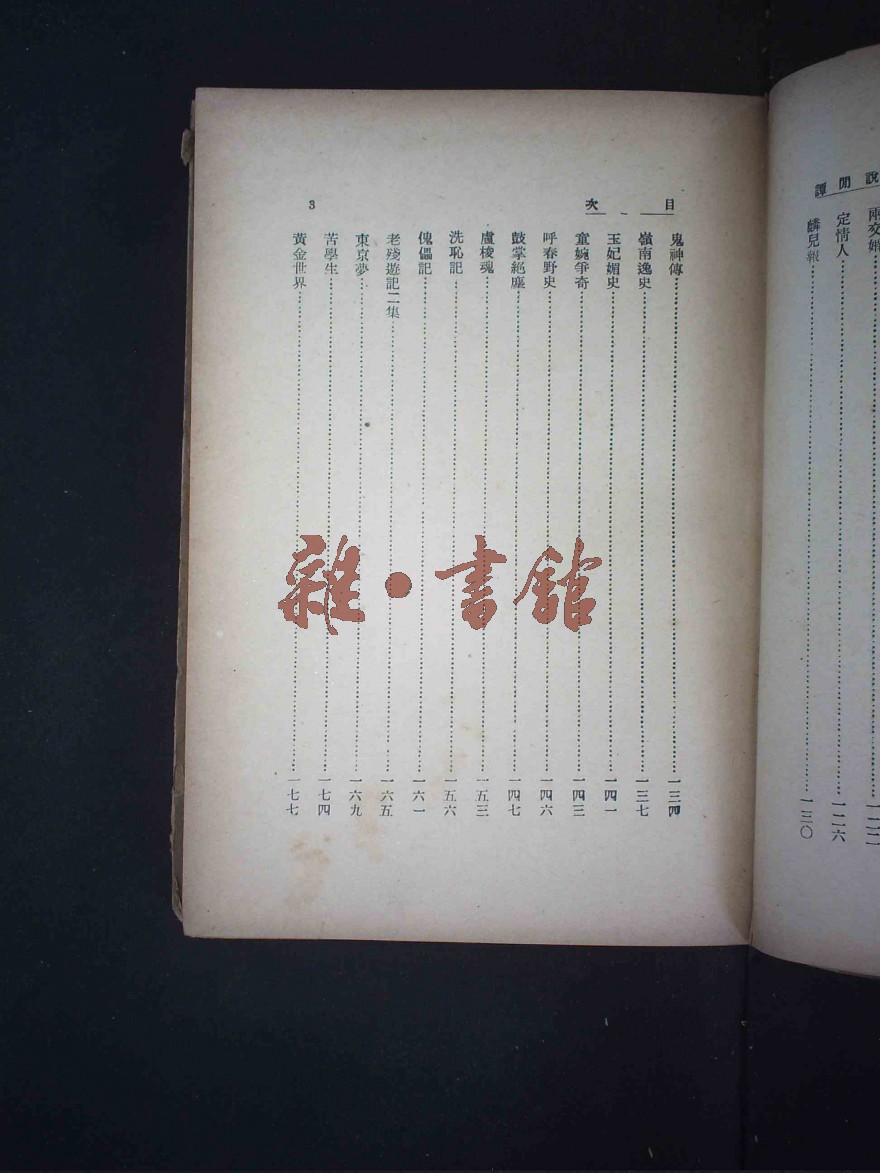 說閒譚
兩交婚……一二二
定情人……一二六
麟兒報……一三〇
目次
鬼神傳……一三四
嶺南逸史……一三七
玉妃媚史……一四一
童婉爭奇……一四三
呼春野史……一四六
鼓掌絕塵……一四七
盧梭魂……一五三
洗恥記……一五六
傀儡記……一六一
老殘遊記二集……一六五
東京夢……一六九
苦學生……一七四
黃金世界……一七七
3
雜·書館